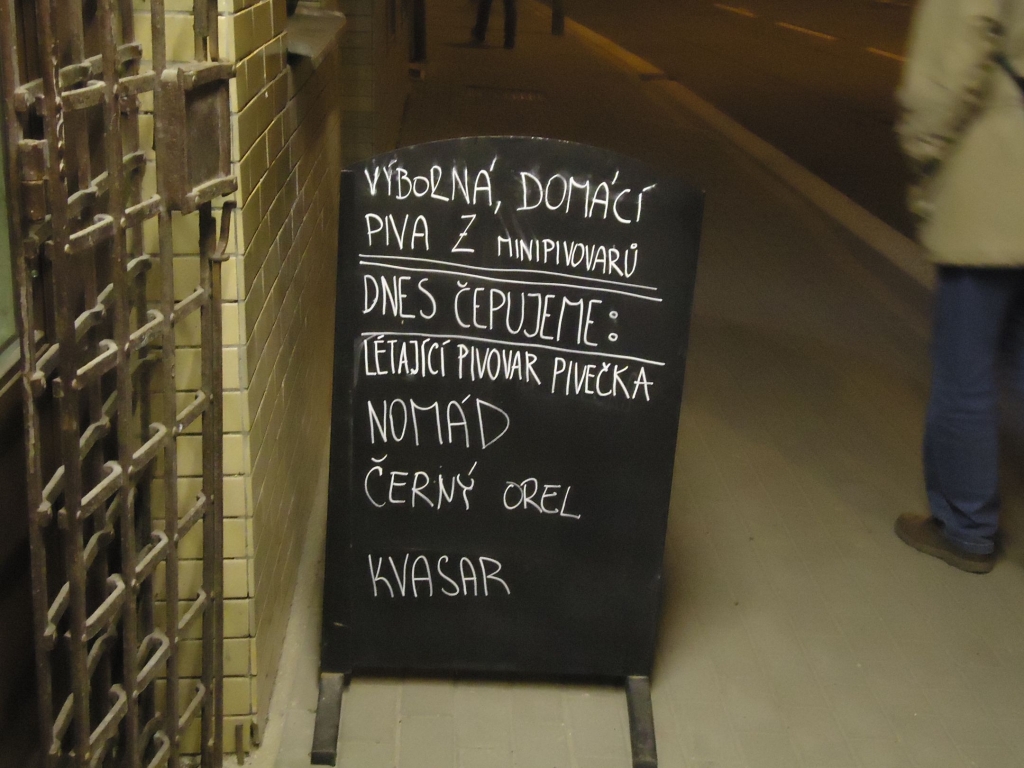 VÝBORNÁ, DOMÁCÍ
PIVA Z MINIPIVOVARŮ
DNES ČEPUJEME:
LÉTAJÍCÍ PIVOVAR PIVEČKA
NOMÁD
ČERNÝ OREL
KVASAR